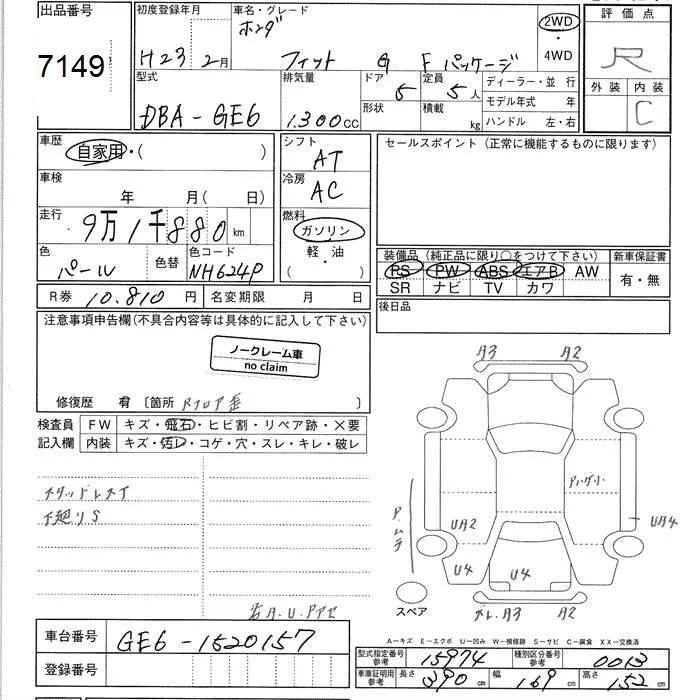 出品番号
7149
初度登録年月
H23 2月
車名・グレード
ホンダ
フィット G Fパッケージ
2WD
・
4WD
評価点
R
外装 内装
C
型式
DBA-GE6
排気量
1.300cc
ドア 5
形状
定員 5人
積載 kg
ディーラー・並行
モデル年式 年
ハンドル 左・右
車歴
自家用・( )
車検
年 月( 日)
走行
9万1千880km
色
パール
色替
色コード
NH624P
シフト
AT
冷房
AC
燃料
ガソリン
軽・油
( )
セールスポイント (正常に機能するものに限ります)
装備品 (純正品に限り○をつけて下さい)
PS PW ABS エアB AW
SR ナビ TV カワ
新車保証書
有・無
R券 10.810円
名変期限 月 日
後日品
注意事項申告欄(不具合内容等は具体的に記入して下さい)
ノークレーム車
no claim
修復歴 有 〔箇所 Rフロア歪 〕
検査員
記入欄
FW キズ・飛石・ヒビ割・リペア跡・×要
内装 キズ・汚レ・コゲ・穴・スレ・キレ・破レ
スタッドレスT
下廻りS
A3 A2
Pハゲ小
P.ムラ
UA2
UA4
U4
U4
スペア
ズレ.A3 A2
A-キズ E-エクボ U-凹み W-補修跡 S-サビ C-腐食 XX-交換済
車台番号
GE6-1520157
登録番号
型式指定番号
参考
15974
種別区分番号
参考
0013
車庫証明用
参考
長さ 390cm
幅 169cm
高さ 152cm